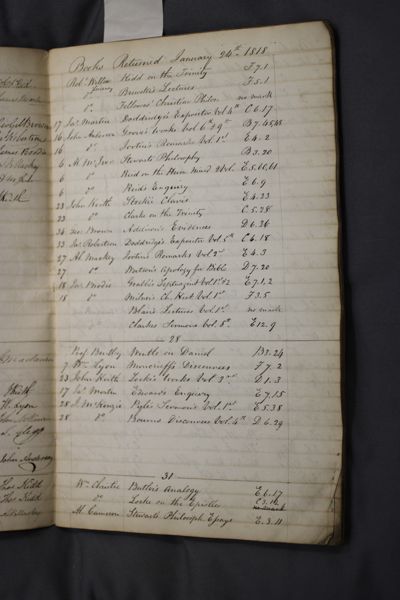 Books Returned January 24th 1818
Robt Wilson Kidd on the Trinity F.7.1
Do Brewster's Lectures F.5.1
Do Fellowes' Christian Philos. no mark
17 Jas. Martin Doddridge's Expositor Vol 4th C.6.17
16 John Anderson Groves's works Vol 6th & 9th B.7.45,48
16 Do Jortin's Remarks Vol 1st E.4.2
6 Al. McIver Stewarts Philosophy B.3.20
6 Do Reid on the Mind 2 Vol. E.5.60,61
6 Do Reid's Enquiry E.6.9
23 John Keith Stockii Clavis E.4.23
23 Do Clarke on the Trinity C.5.28
34 Geo. Brown Addison's Evidences D.6.36
33 Jas. Robertson Doddridge's Expositor Vol 5th C.4.18
27 Al. Mackey Jortin's Remarks Vol 2d E.4.3
27 Do Watson's Apology for Bible D.7.20
18 Jas. Brodie Grabii Septuagint Vol 1st & 2 E.7.1,2
18 Do Milner's Ch. Hist. Vol 1st F.3.5
Blair's Lectures Vol 1st no mark
Clarkes Sermons Vol. 5th E.12.9
28
Prof. Bentley Wintle on Daniel B.3.24
7 Wm Lyon Moncrieff's Discourses F.7.2
23 John Keith Locke's works Vol 3rd D.1.3
17 Jas. Martin Edwards Enquiry E.7.15
28 J. McKenzie Pyle's Sermons Vol. 1st E.5.38
28 Do Bourns Discourses Vol. 4th D.6.29
31
Wm Christie Butler's Analogy E.6.17
Do Locke on the Epistles C.3.16
no mark
Al. Cameron Stewarts Philosoph. Essays E.3.11
John Anderson
Thos Kidd
Thos Kidd